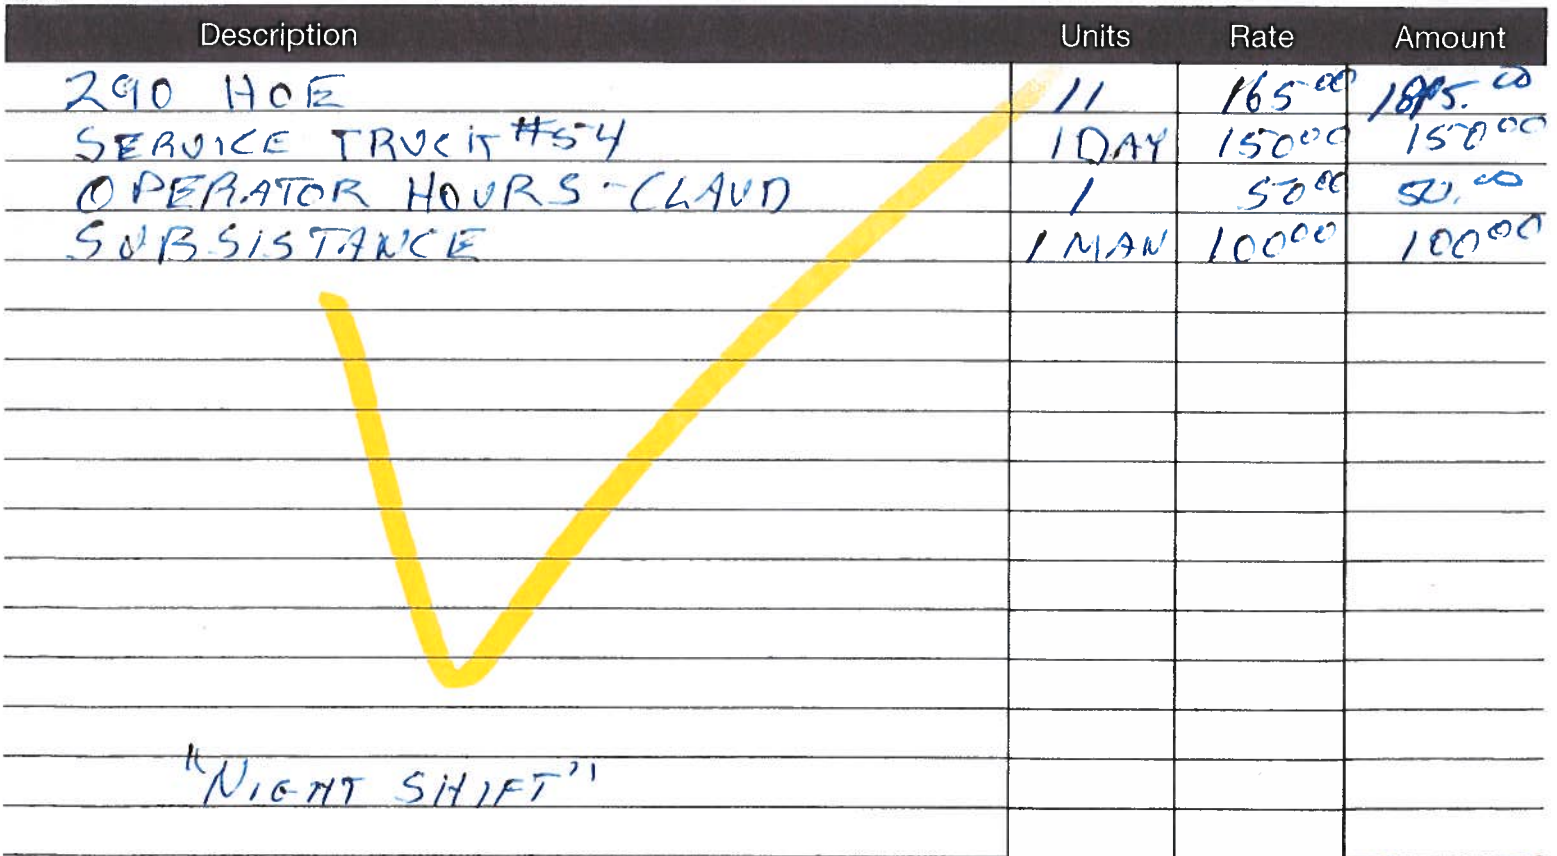 Description Units Rate Amount
290 HOE 11 165.00 1815.00
SERVICE TRUCK #54 1 DAY 150.00 150.00
OPERATOR HOURS - CLAUD 1 50.00 50.00
SUBSISTANCE 1 MAN 100.00 100.00
"NIGHT SHIFT"